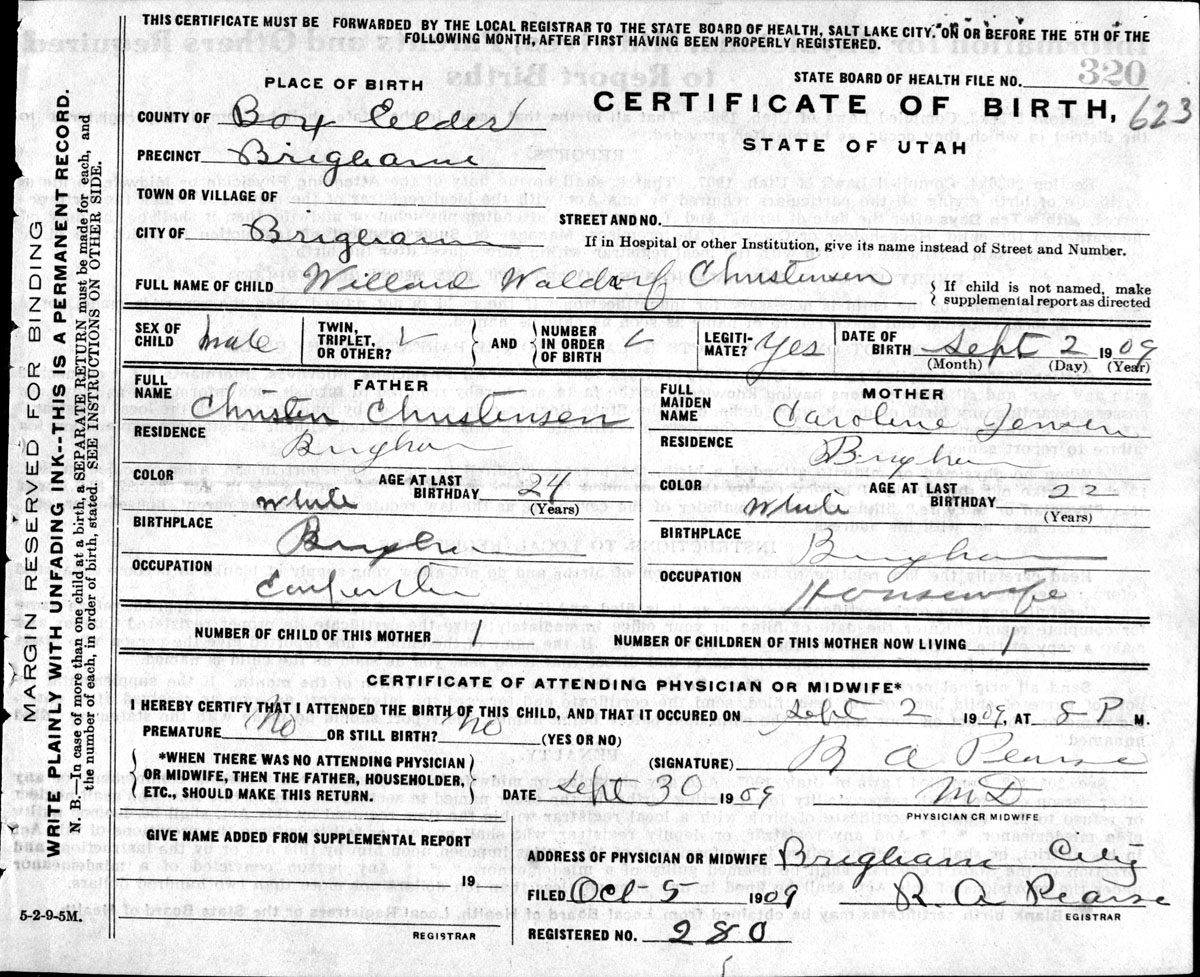 THIS CERTIFICATE MUST BE FORWARDED BY THE LOCAL REGISTRAR TO THE STATE BOARD OF HEALTH, SALT LAKE CITY, ON OR BEFORE THE 5TH OF THE
FOLLOWING MONTH, AFTER FIRST HAVING BEEN PROPERLY REGISTERED.
320
PLACE OF BIRTH
STATE BOARD OF HEALTH FILE NO.
COUNTY OF Box Elder
CERTIFICATE OF BIRTH, 623
PRECINCT Brigham
STATE OF UTAH
TOWN OR VILLAGE OF
STREET AND NO.
CITY OF Brigham
If in Hospital or other Institution, give its name instead of Street and Number.
FULL NAME OF CHILD Willard Waldorf Christensen { If child is not named, make
supplemental report as directed
SEX OF CHILD Male TWIN, TRIPLET, OR OTHER? } AND { NUMBER IN ORDER OF BIRTH LEGITI-MATE? Yes DATE OF BIRTH Sept 2 1909
(Month) (Day) (Year)
FATHER
MOTHER
FULL NAME Christen Christensen
FULL MAIDEN NAME Caroline Jensen
RESIDENCE Brigham
RESIDENCE Brigham
COLOR White AGE AT LAST BIRTHDAY 24 (Years)
COLOR White AGE AT LAST BIRTHDAY 22 (Years)
BIRTHPLACE Brigham
BIRTHPLACE Brigham
OCCUPATION
OCCUPATION Housewife
NUMBER OF CHILD OF THIS MOTHER 1 NUMBER OF CHILDREN OF THIS MOTHER NOW LIVING 1
CERTIFICATE OF ATTENDING PHYSICIAN OR MIDWIFE*
I HEREBY CERTIFY THAT I ATTENDED THE BIRTH OF THIS CHILD, AND THAT IT OCCURED ON Sept 2 1909, AT 8 P M.
PREMATURE No OR STILL BIRTH? No (YES OR NO)
(SIGNATURE) R A Pearse
*WHEN THERE WAS NO ATTENDING PHYSICIAN
OR MIDWIFE, THEN THE FATHER, HOUSEHOLDER,
ETC., SHOULD MAKE THIS RETURN.
DATE Sept 30 1909 MD
PHYSICIAN OR MIDWIFE
GIVE NAME ADDED FROM SUPPLEMENTAL REPORT
19
REGISTRAR
ADDRESS OF PHYSICIAN OR MIDWIFE Brigham City
FILED Oct 5 1909 R. A Pearse
EGISTRAR
REGISTERED NO. 280
5-2-9-5M.
MARGIN RESERVED FOR BINDING
WRITE PLAINLY WITH UNFADING INK--THIS IS A PERMANENT RECORD.
N. B.—In case of more than one child at a birth, a SEPARATE RETURN must be made for each, and
the number of each, in order of birth, stated. SEE INSTRUCTIONS ON OTHER SIDE.